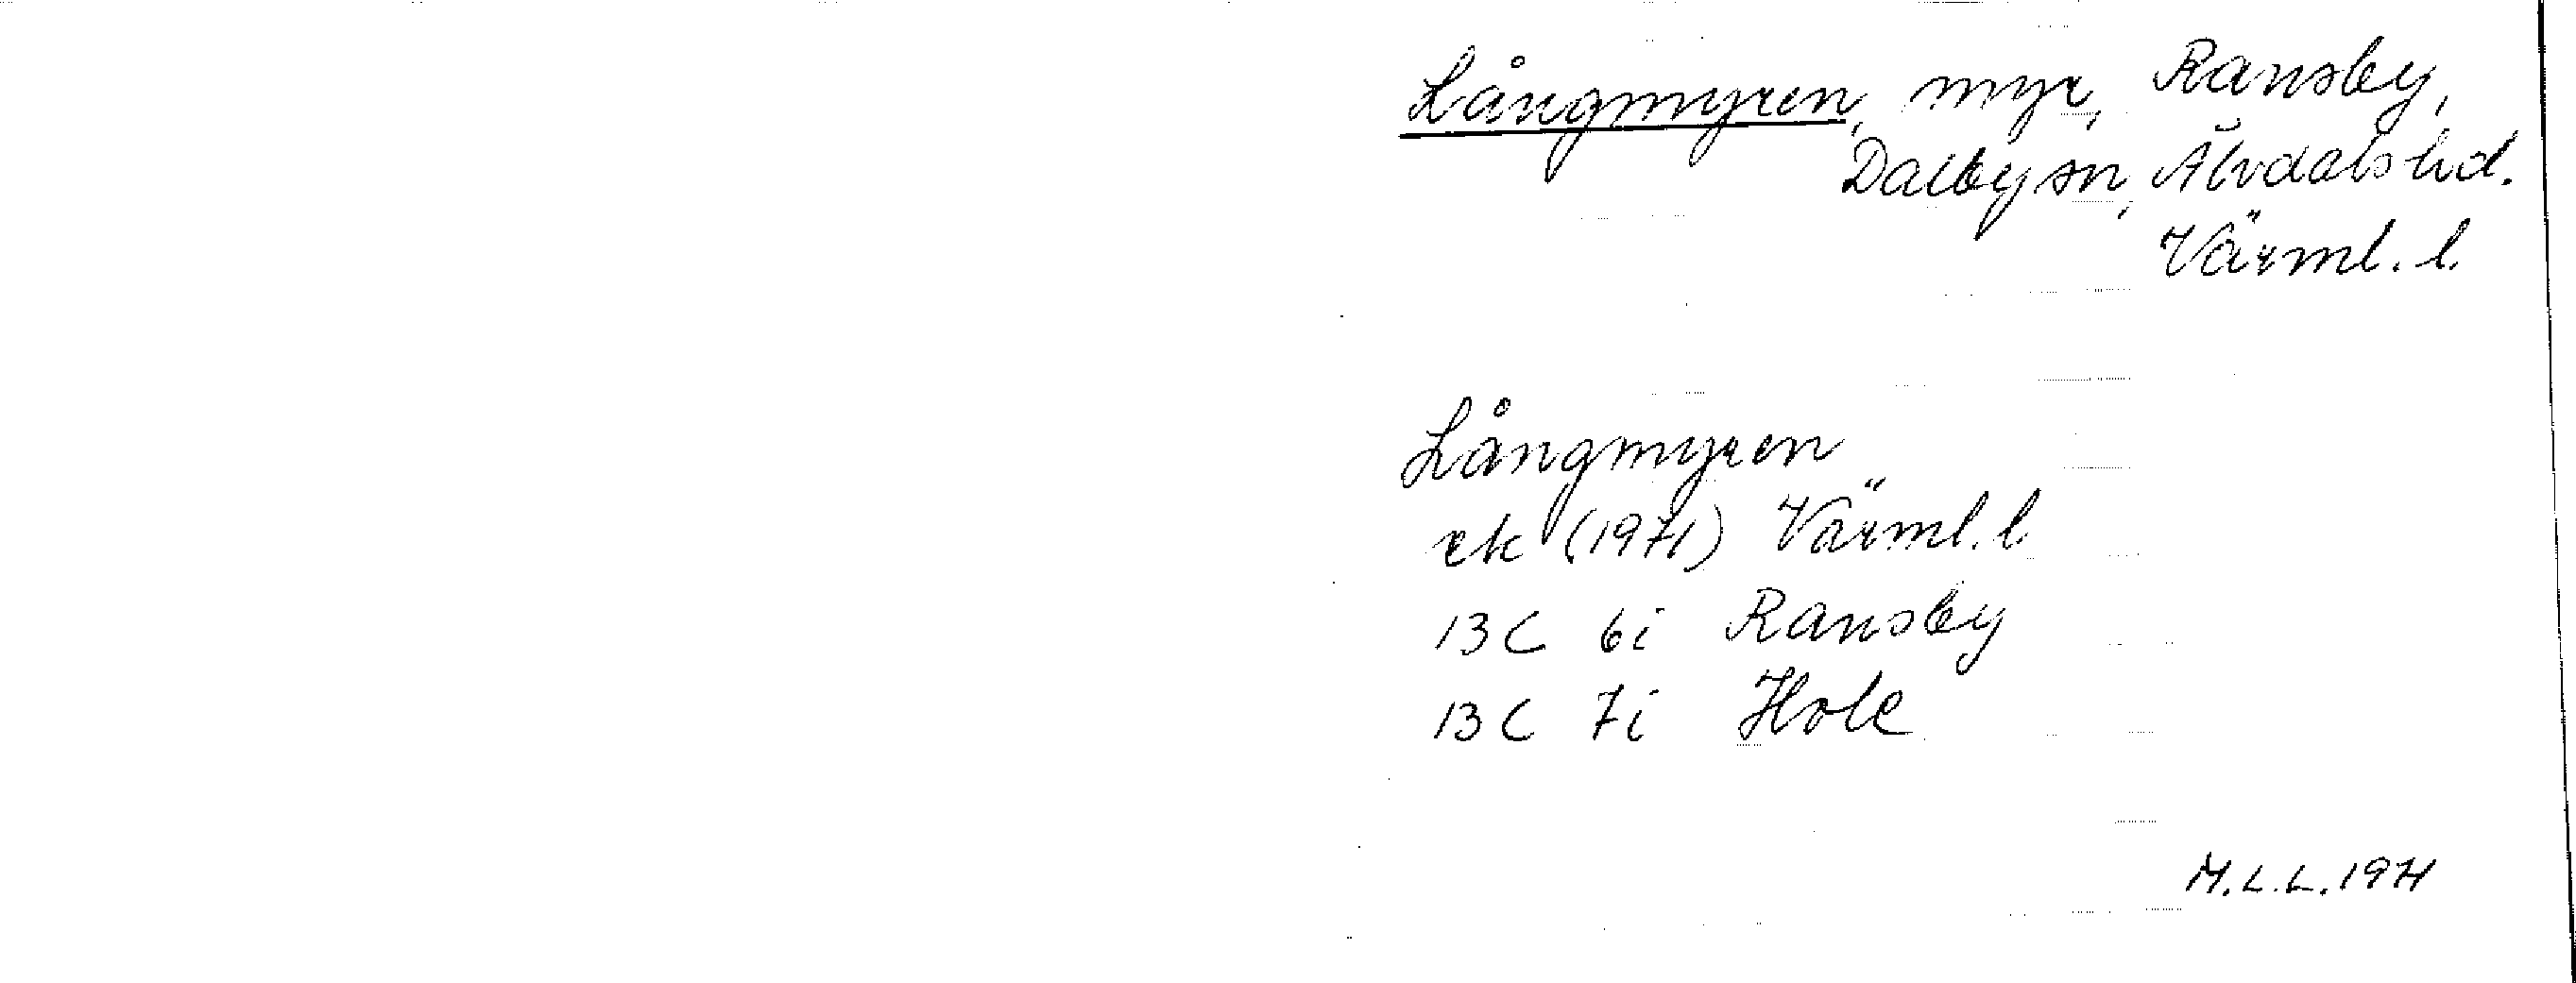 Långmyren, myr, Ransby,
Dalby sn, Älvdals hd.
Värml. l.
Långmyren
ek (1971) Värml. l
13C 6i Ransby
13C 7i Hole
M.L.L. 1971